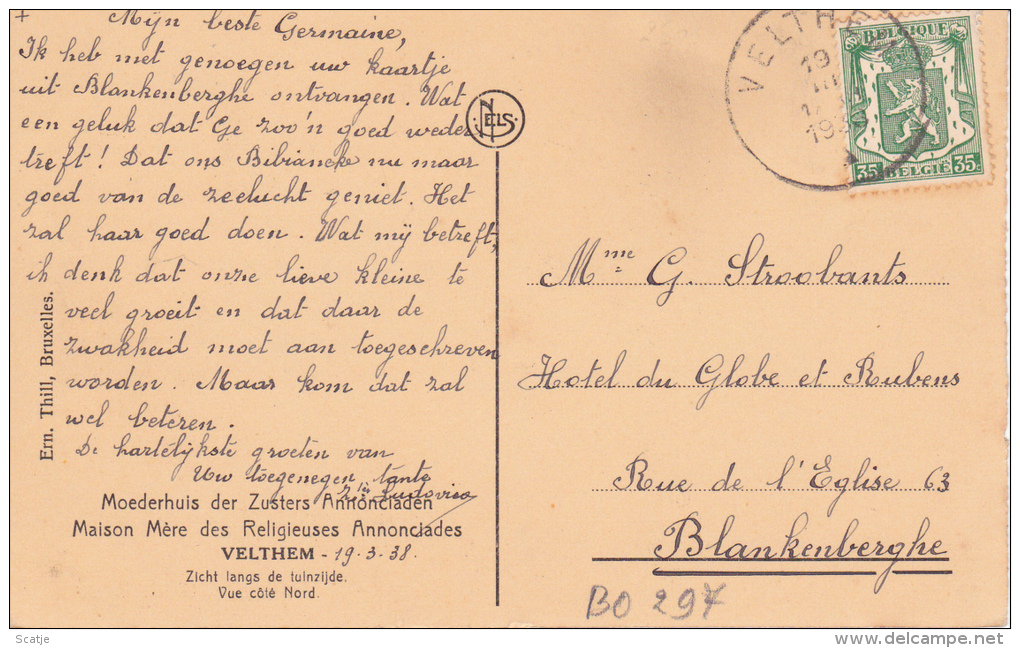 + Mijn beste Germaine,
Ik heb met genoegen uw kaartje
uit Blankenberghe ontvangen. Wat
een geluk dat Ge zoo'n goed weder
treft! Dat ons Bibianeke nu maar
goed van de zeelucht geniet. Het
zal haar goed doen. Wat mij betreft,
ik denk dat onze lieve kleine te
veel groeit en dat daar de
zwakheid moet aan toegeschreven
worden. Maar kom dat zal
wel beteren.
De hartelijkste groeten van
Uw toegenegen tante
Zr Ludovica
Moederhuis der Zusters Annonciaden
Maison Mère des Religieuses Annonciades
VELTHEM - 19-3-38.
Zicht langs de tuinzijde.
Vue côté Nord.
Ern. Thill, Bruxelles.
NELS
VELTHEM
19
BELGIQUE
35 BELGIË 35c
Mme G. Stroobants
Hotel du Globe et Rubens
Rue de l'Eglise 63
Blankenberghe
BO 297
Scatje
delcampe.net